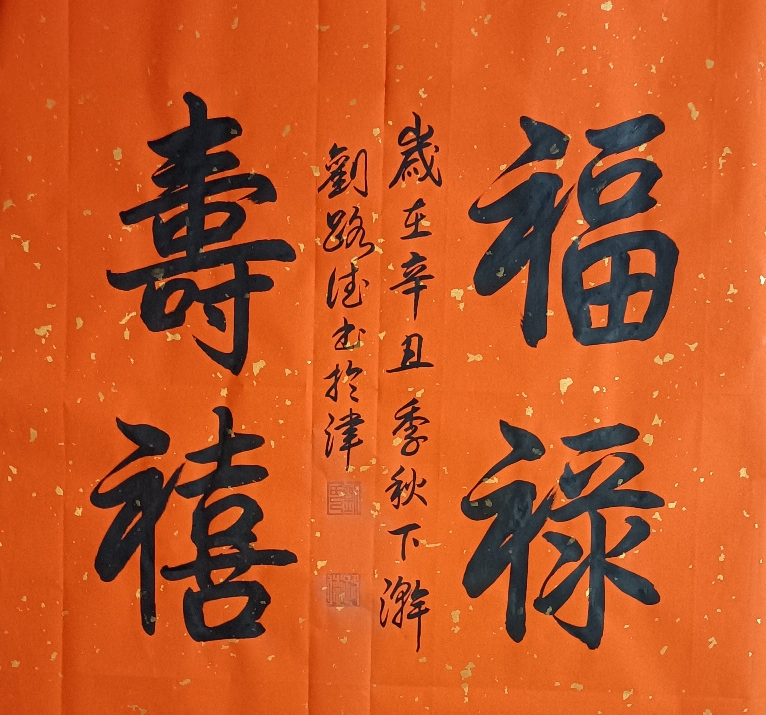 福禄
歲在辛丑季秋下澣
劉路德书於津
壽禧